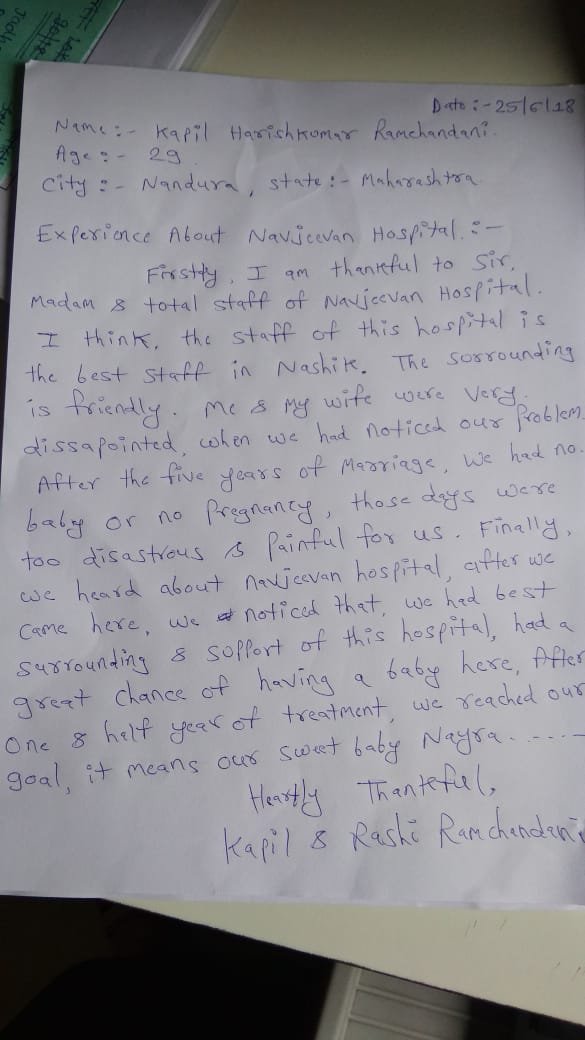 Date :- 25/6/18
Name :- Kapil Harishkumar Ramchandani.
Age :- 29
City :- Nandura, state :- Maharashtra
Experience About Navjeevan Hospital. :-
Firstly, I am thankful to Sir,
Madam & total staff of Navjeevan Hospital.
I think, the staff of this hospital is
the best staff in Nashik. The sorrounding
is friendly. Me & my wife were very.
dissapointed, when we had noticed our problem.
After the five years of Marriage, we had no.
baby or no Pregnancy, those days were
too disastrous & Painful for us. Finally,
we heard about navjeevan hospital, after we
came here, we noticed that, we had best
surrounding & support of this hospital, had a
great chance of having a baby here, After
One & half year of treatment, we reached our
goal, it means our sweet baby Nayra.-----
Heartly Thankful,
Kapil & Rashi Ramchandani